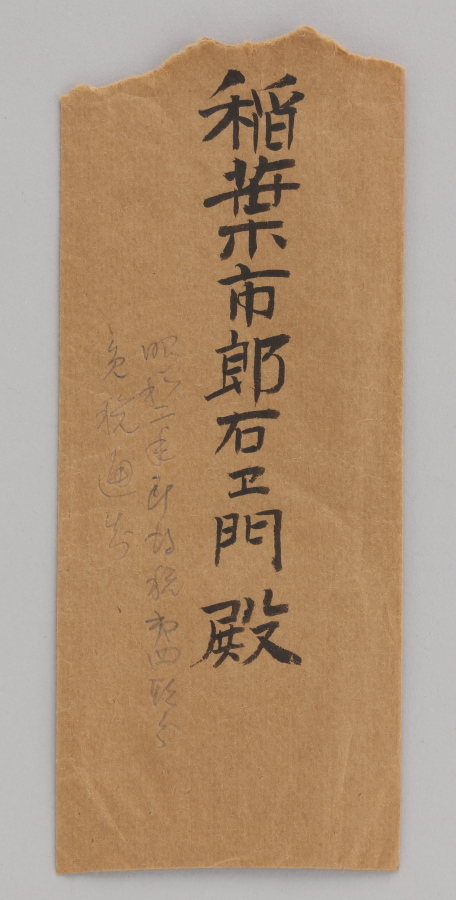 稲葉市郎右ヱ門 殿
昭和二年所得税第四期分
免税通知